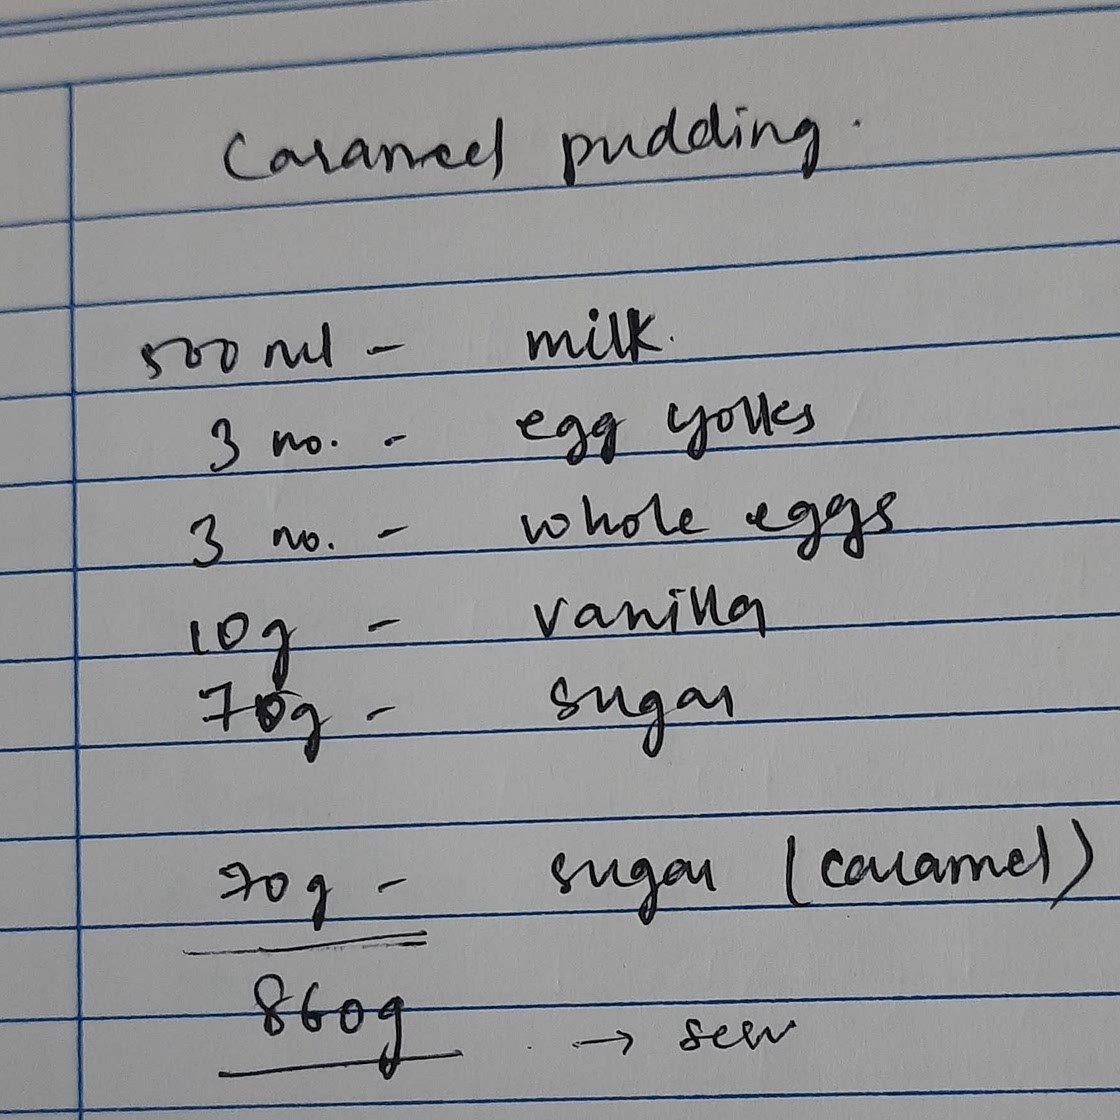 Caramel pudding.
500 ml - milk.
3 no. - egg yolks
3 no. - whole eggs
10g - vanilla
70g - sugar
70g - sugar (caramel)
860g →